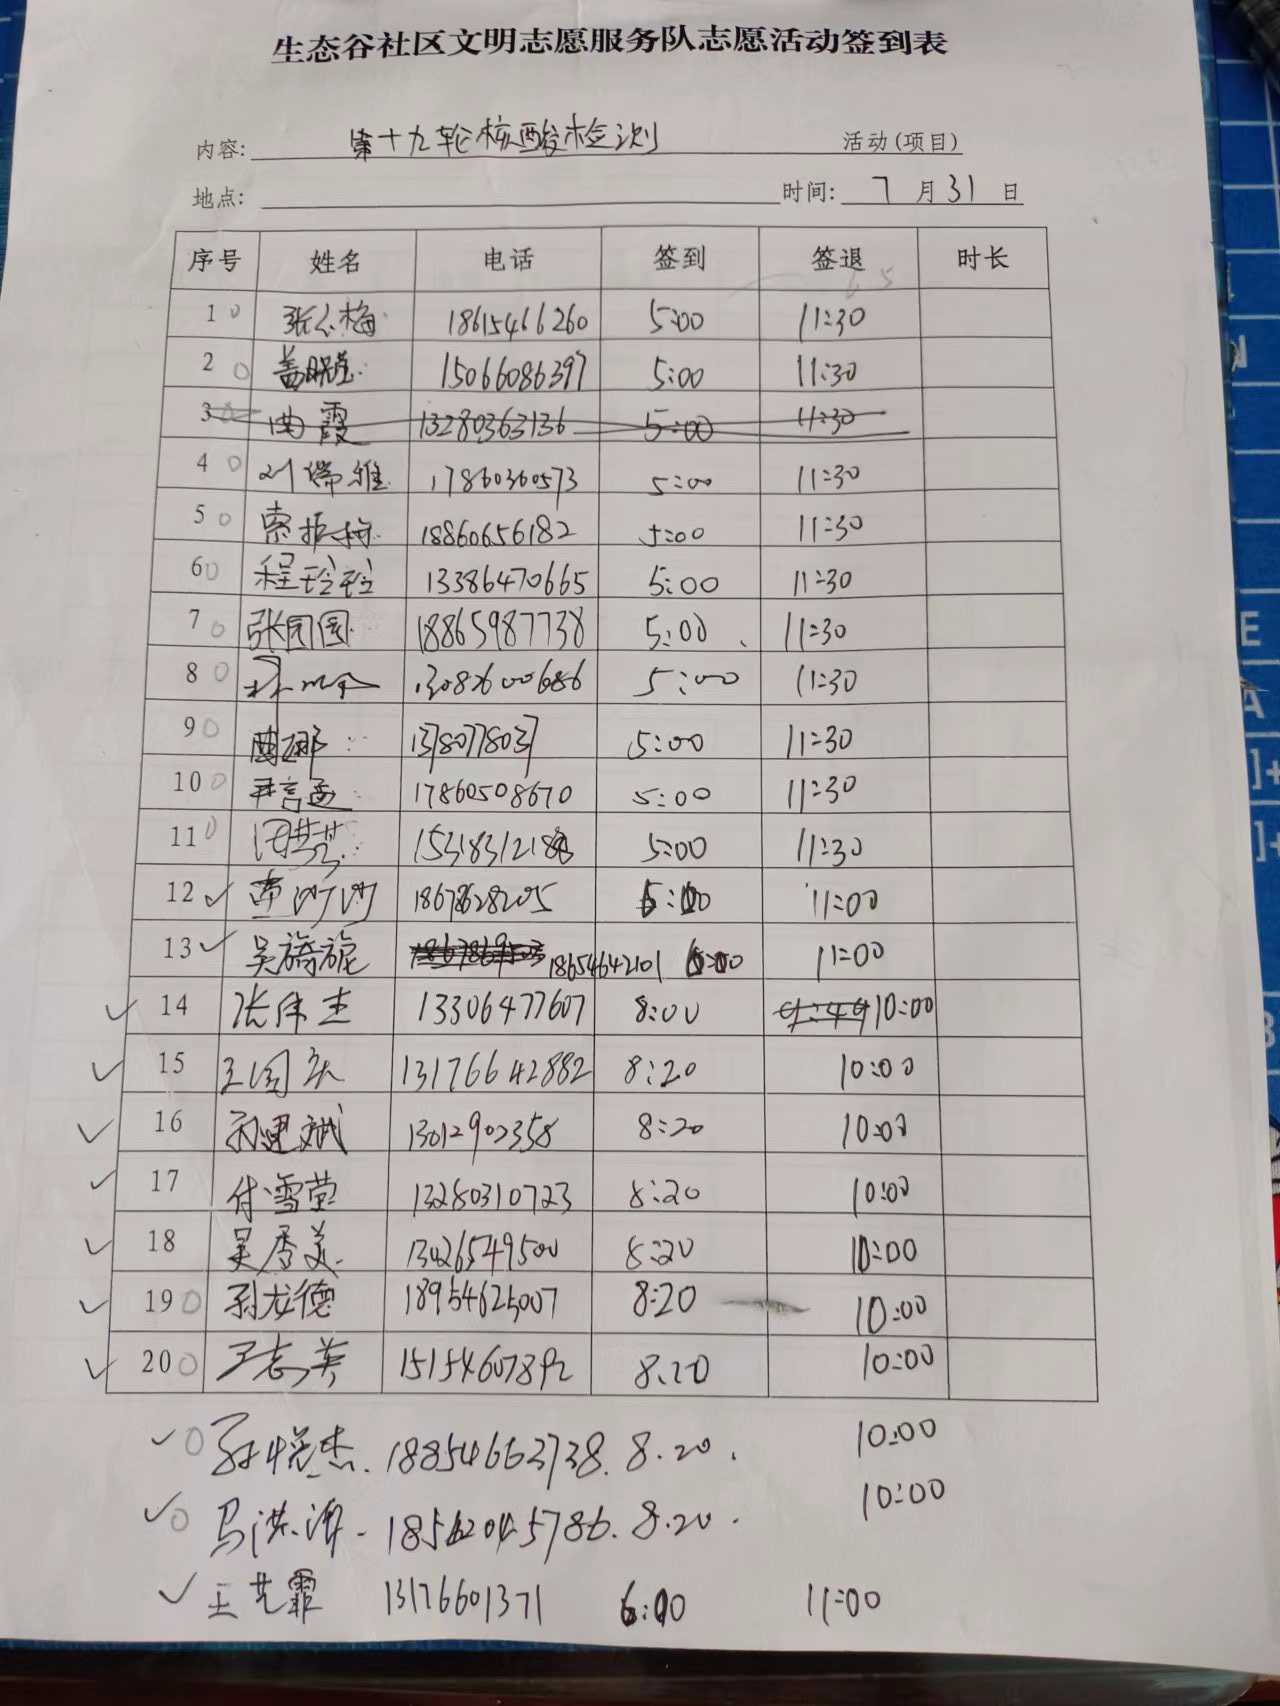 生态谷社区文明志愿服务队志愿活动签到表
内容: 第十九轮核酸检测 活动(项目)
地点: 时间: 7月31日
序号 姓名 电话 签到 签退 时长
1 张介梅 18615466260 5:00 11:30
2 盖晓莹 15066086397 5:00 11:30
3 曲霞 13280363136 5:00 11:30
4 刘瑞雅 17860360573 5:00 11:30
5 索振梅 18860656182 5:00 11:30
6 程玲玲 13386470665 5:00 11:30
7 张园园 18865987738 5:00 11:30
8 13082600686 5:00 11:30
9 曲娜 5:00 11:30
10 尹言西 17860508670 5:00 11:30
11 5:00 11:30
12 曹沙沙 18678628205 6:00 11:00
13 吴旖旎 18654642101 6:00 11:00
14 张伟杰 13306477607 8:00 10:00
15 王国庆 13176642882 8:20 10:00
16 孙建斌 13012902358 8:20 10:00
17 付雪莹 13280310723 8:20 10:00
18 吴秀美 13026549500 8:20 10:00
19 孙龙德 18954625007 8:20 10:00
20 丁志英 15154607892 8:20 10:00
孙悦杰 18854663738 8.20. 10:00
马洪涛 18562045786 8.20. 10:00
王芝霏 13176601371 6:00 11:00